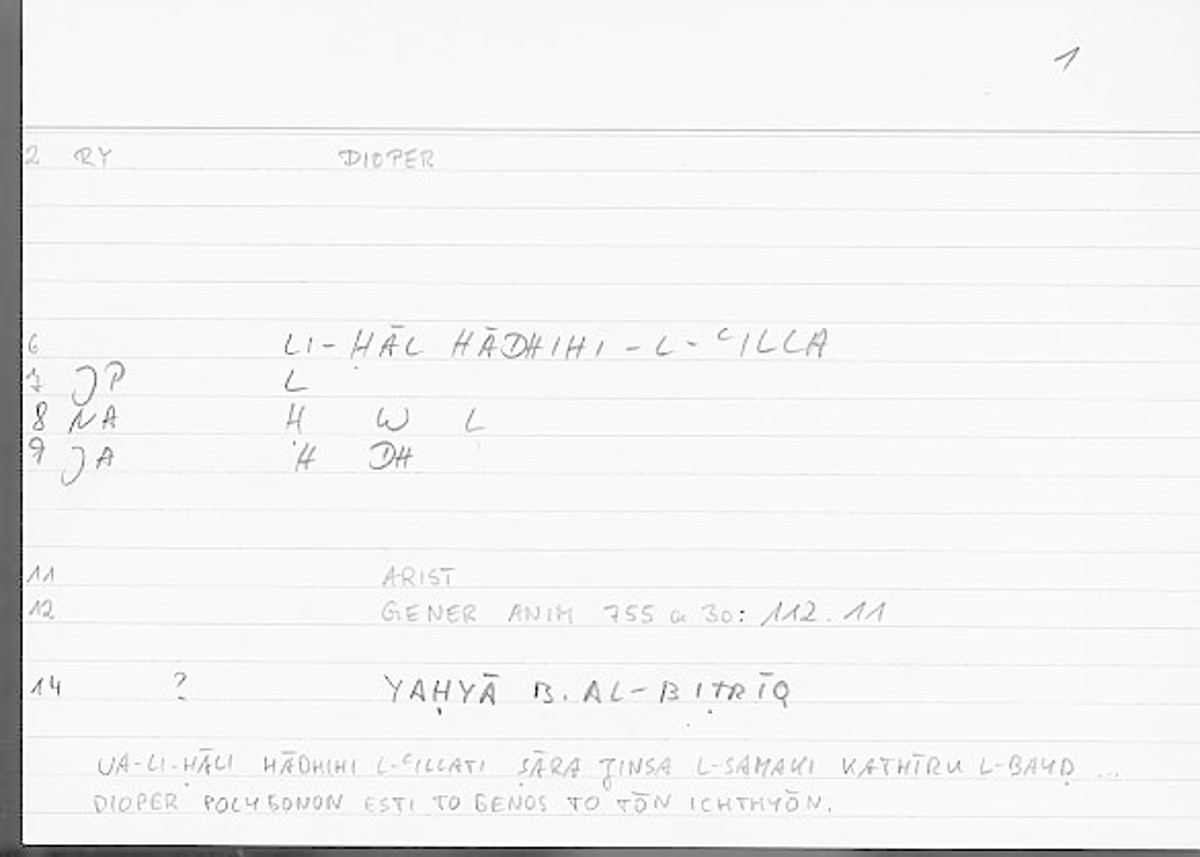 1
2 RY DIOPER
6 LI-ḤĀL HĀDHIHI-L-ʿILLA
7 JP L
8 NA Ḥ W L
9 JA H DH
11 ARIST
12 GENER ANIM 755 a 30: 112.11
14 ? YAḤYĀ B. AL-BIṬRĪQ
WA-LI-ḤĀLI HĀDHIHI L-ʿILLATI ṢĀRA JINSA L-SAMAKI KATHĪRU L-BAYḌ ...
DIOPER POLYGONON ESTI TO GENOS TO TŌN ICHTHYŌN.